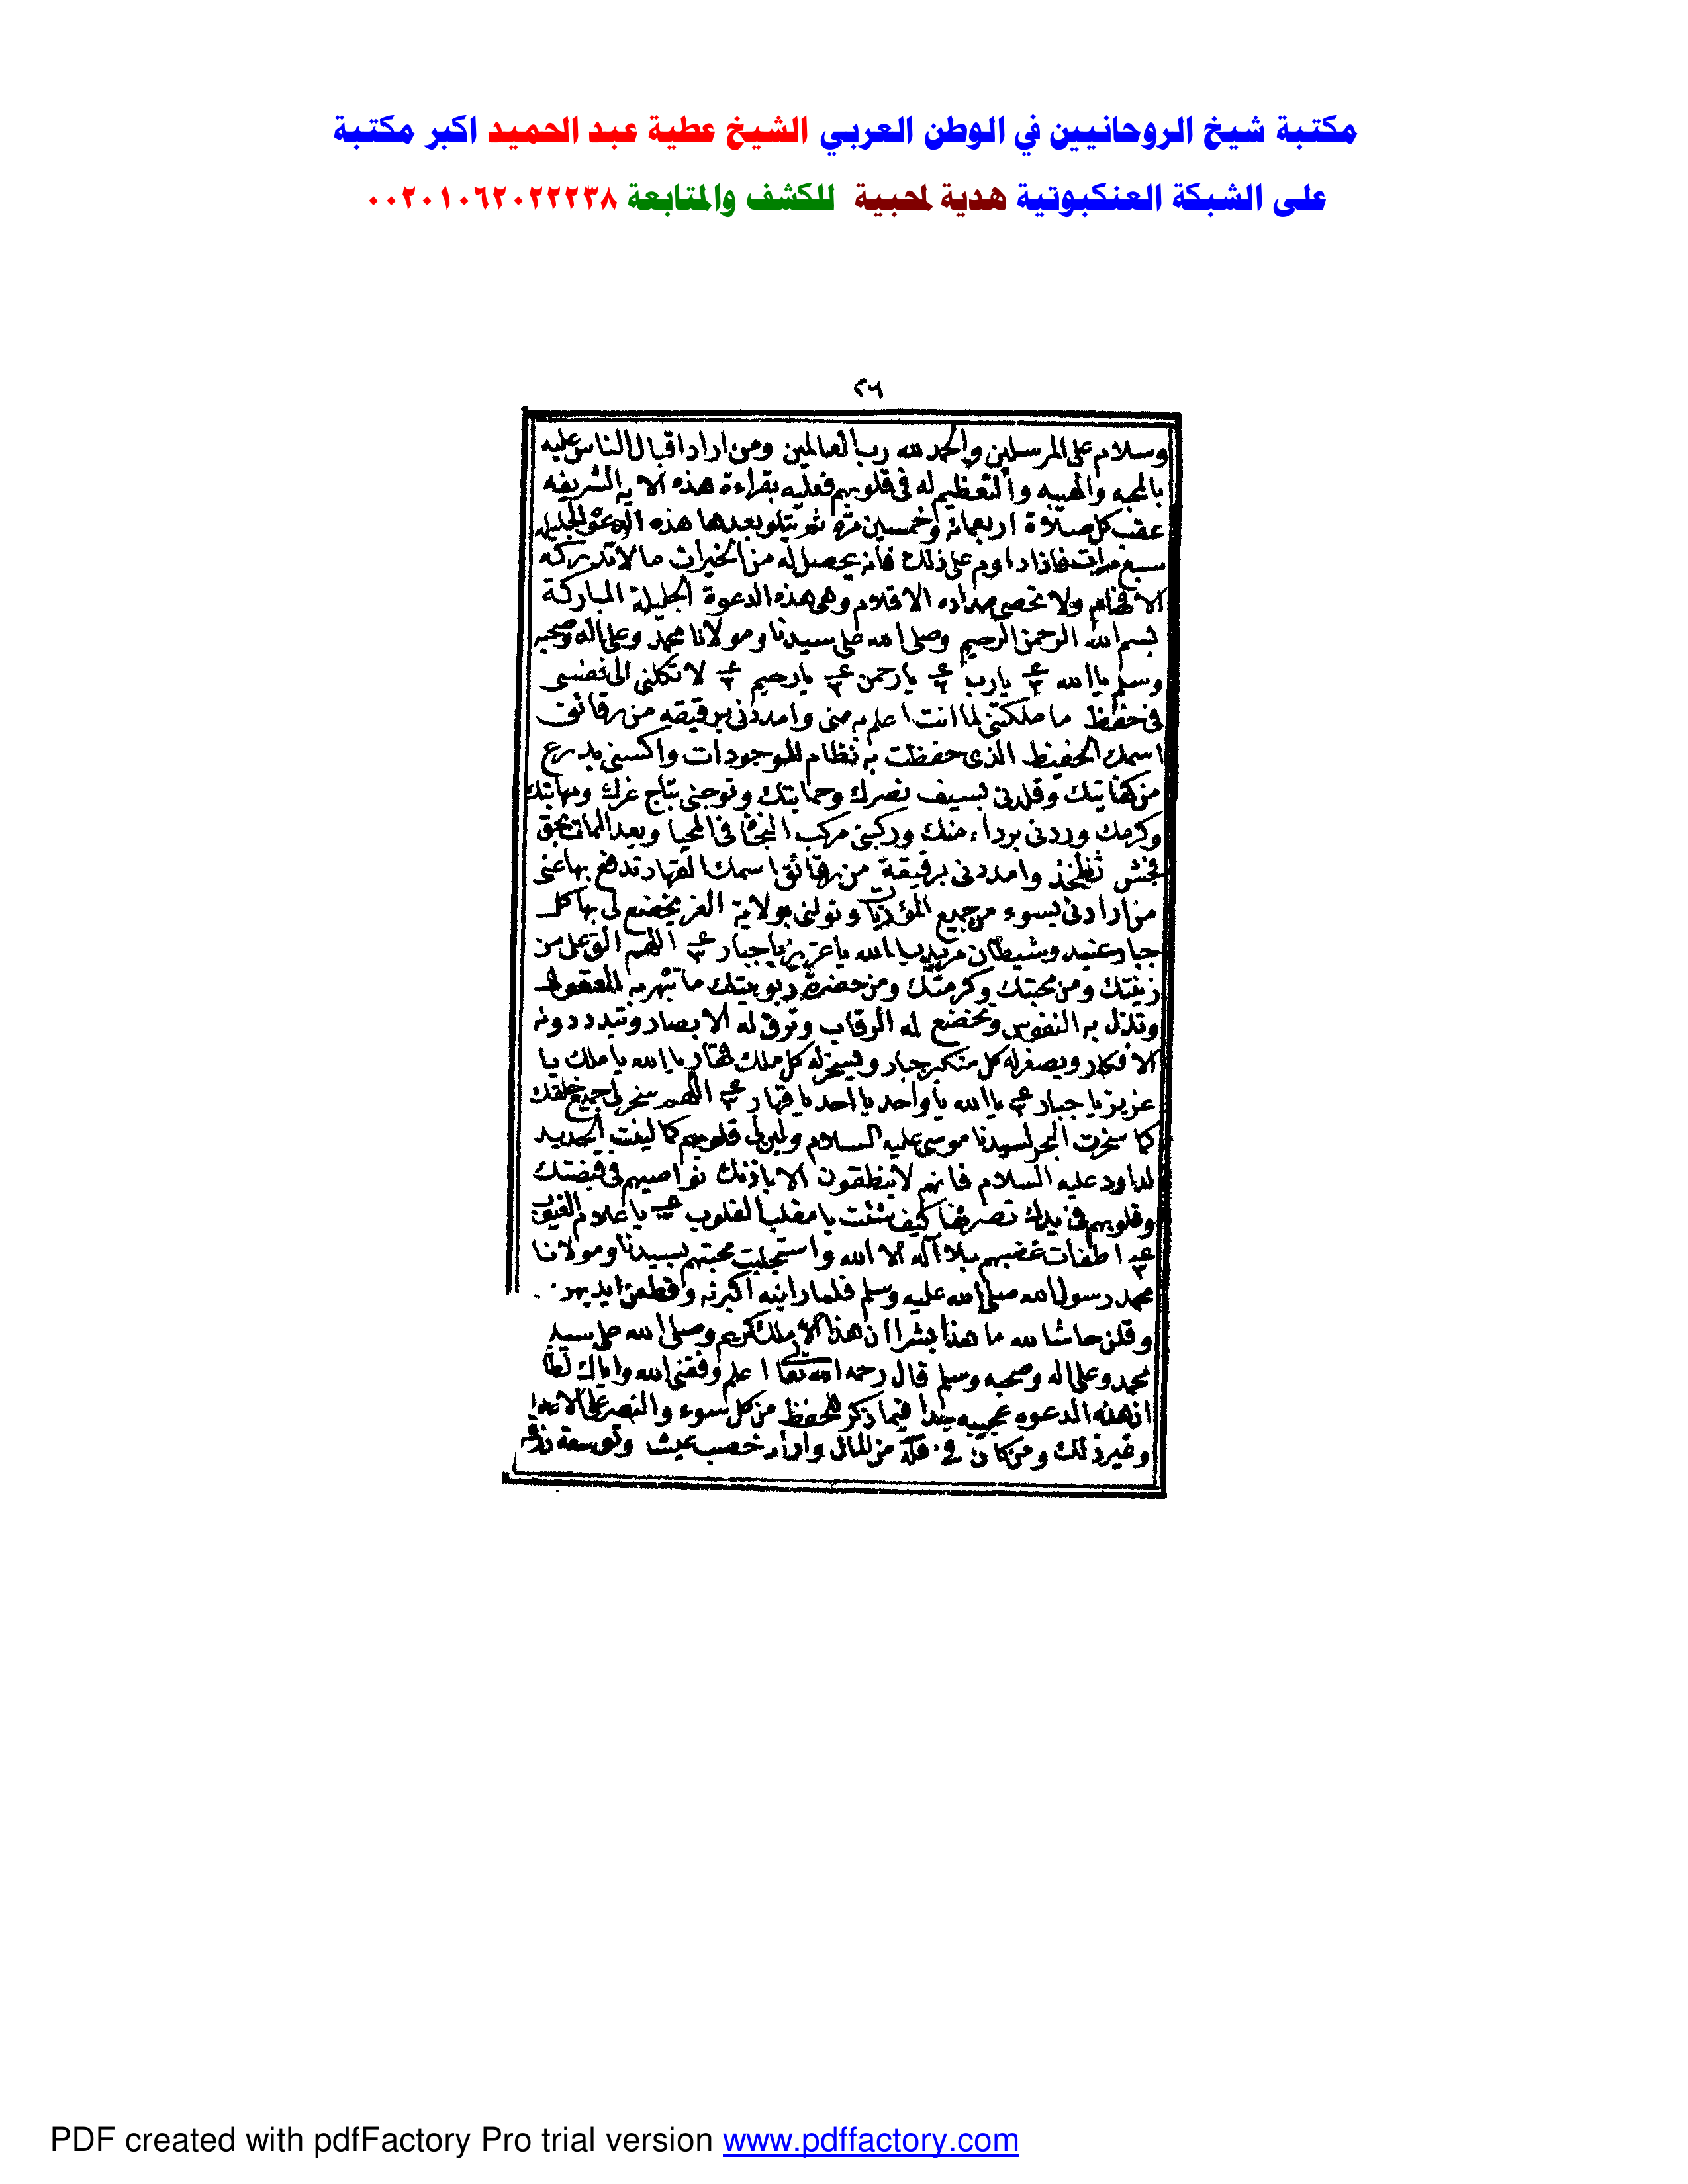 مكتبة شيخ الروحانيين في الوطن العربي الشيخ عطية عبد الحميد اكبر مكتبة
على الشبكة العنكبوتية هدية لمحبية للكشف والمتابعة ٠٠٢٠١٠٦٢٠٢٢٢٣٨
٢٦
وسلام على المرسلين والحمد لله رب العالمين ومن اراد اقبال الناس عليه
بالمحبه والهيبه والتعظيم له فى قلوبهم فعليه بقراءة هذه الايه الشريفه
عقب كل صلاة اربعمائة وخمسين مرة ثم يتلو بعدها هذه الدعوة الجليله
سبع مرات فاذا داوم على ذلك فانه يحصل له من الخيرات ما لا تدركه
الافهام ولا تحصى مداده الاقلام وهى هذه الدعوة الجليلة المباركة
بسم الله الرحمن الرحيم وصلى الله على سيدنا ومولانا محمد وعلى اله وصحبه
وسلم يا الله ٣ يارب ٣ يارحمن ٣ يارحيم ٣ لا تكلنى الى نفسى
فى حفظ ما ملكتنى لما انت اعلم به منى وامددنى برقيقه من رقائق
اسمك الحفيظ الذى حفظت به نظام الموجودات واكسنى بدرع
من كفايتك وقلدنى بسيف نصرك وحمايتك وتوجنى بتاج عزك ومهابتك
وكرمك وردنى برداء منك وركبنى مركب النجاة فى المحيا وبعد الممات بحق
فجش ثظخذ وامددنى برقيقة من رقائق اسمك القهار تدفع بها عنى
من ارادنى بسوء من جميع المؤذيات وتولنى بولاية العز يخضع لى بها كل
جبار عنيد وشيطان مريد يا الله ياعزيز ياجبار ٣ اللهم الق على من
زينتك ومن محبتك وكرمتك ومن حضرة ربوبيتك ما تبهر به العقول
وتذل به النفوس وتخضع له الرقاب وترق له الابصار وتبدد دونه
الافكار ويصغر له كل متكبر جبار ويسخر له كل ملك قهار يا الله يا ملك يا
عزيز يا جبار ٣ يا الله يا واحد يا احد يا قهار ٣ اللهم سخر لى جميع خلقك
كما سخرت البحر لسيدنا موسى عليه السلام ولين لى قلوبهم كما لينت الحديد
لداود عليه السلام فانهم لا ينطقون الا باذنك نواصيهم فى قبضتك
وقلوبهم فى يدك تصرفها كيف شئت يا مقلب القلوب ٣ يا علام الغيوب
٣ اطفات غضبهم بلا آله الا الله واستجلبت محبتهم بسيدنا ومولانا
محمد رسول الله صلى الله عليه وسلم فلما راينه اكبرنه وقطعن ايديهن
وقلن حاشا لله ما هذا بشرا ان هذا الا ملك كريم وصلى الله على سيد
محمد وعلى اله وصحبه وسلم قال رحمه الله تعالى اعلم وفقنى الله واياك
ان هذه الدعوه عجيبه جدا فيما ذكر للحفظ من كل سوء والنصر على الاعداء
وغير ذلك ومن كان فى قلة من المال واراد خصب عيش وتوسعة رزق
PDF created with pdfFactory Pro trial version www.pdffactory.com